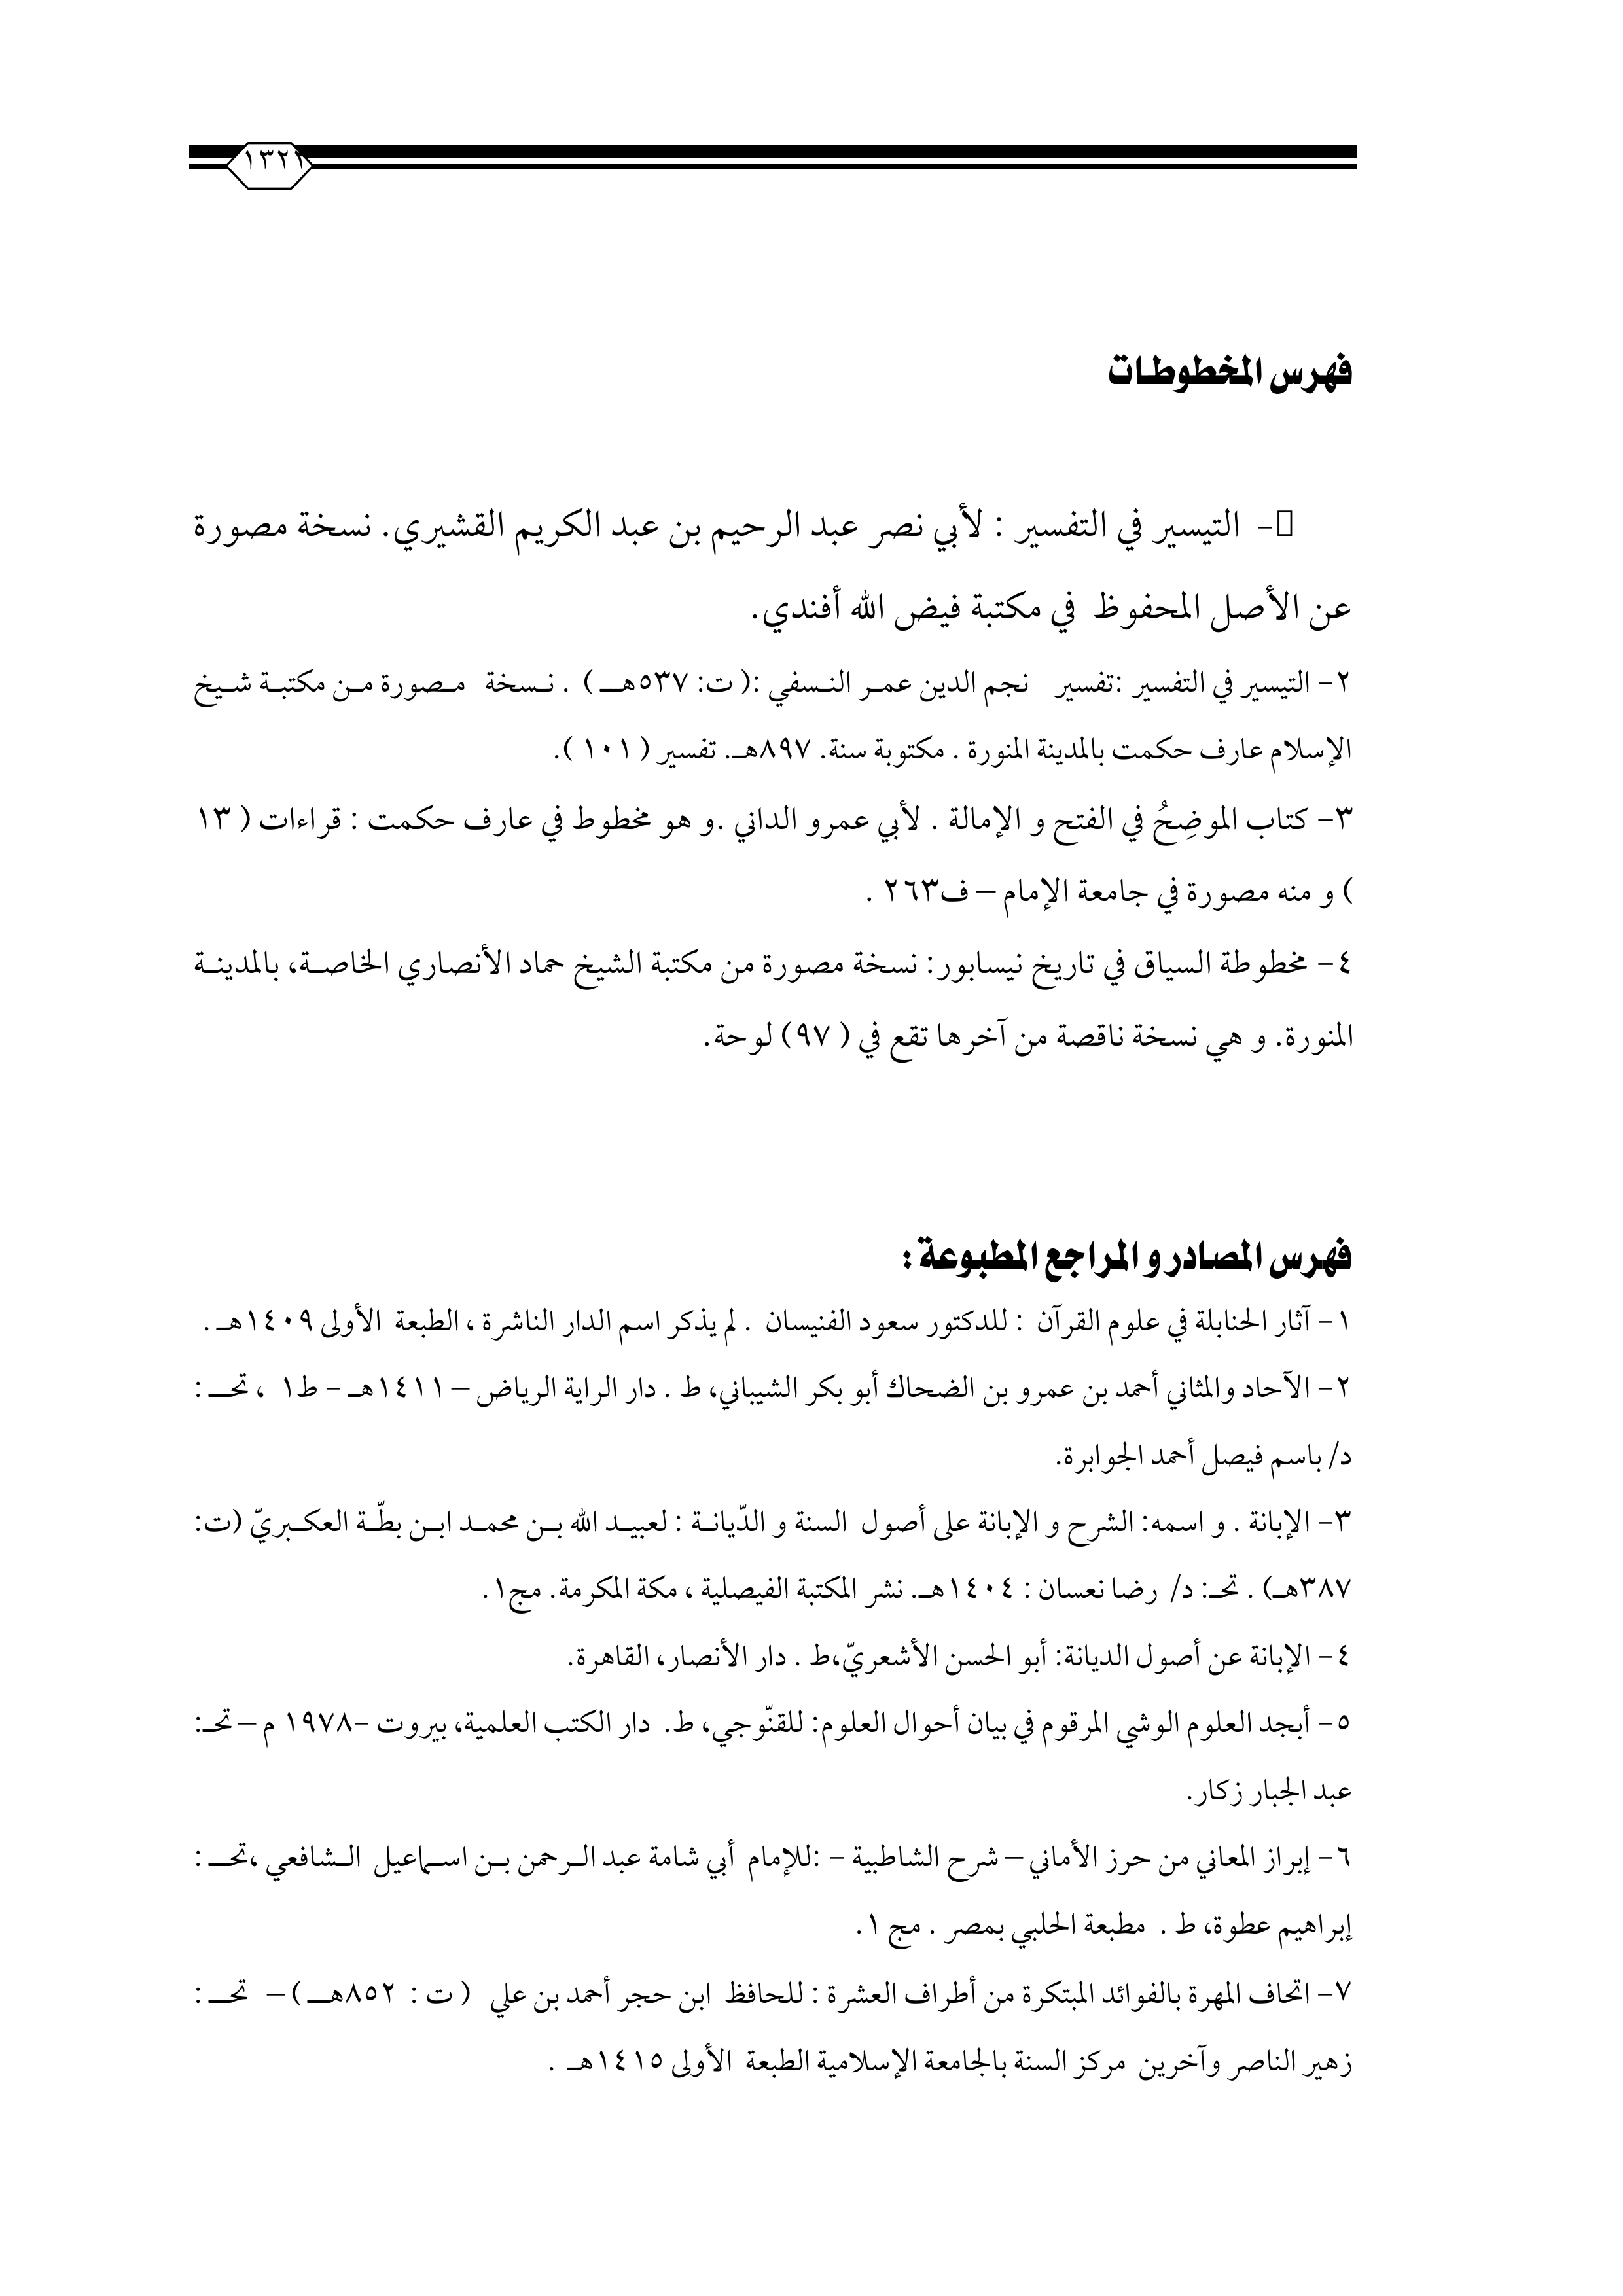 ١٣٢١
فهرس المخطوطات
- التيسير في التفسير : لأبي نصر عبد الرحيم بن عبد الكريم القشيري. نسخة مصورة
عن الأصل المحفوظ في مكتبة فيض الله أفندي.
٢- التيسير في التفسير :تفسير نجم الدين عمـر النـسفي :( ت: ٥٣٧هـــ ) . نـسخة مـصورة مـن مكتبـة شـيخ
الإسلام عارف حكمت بالمدينة المنورة . مكتوبة سنة. ٨٩٧هـ. تفسير ( ١٠١ ).
٣- كتاب الموضِحُ في الفتح و الإمالة . لأبي عمرو الداني .و هو مخطوط في عارف حكمت : قراءات ( ١٣
) و منه مصورة في جامعة الإمام – ف٢٦٣ .
٤- مخطوطة السياق في تاريخ نيسابور: نسخة مصورة من مكتبة الشيخ حماد الأنصاري الخاصـة، بالمدينـة
المنورة. و هي نسخة ناقصة من آخرها تقع في ( ٩٧) لوحة.
فهرس المصادر و المراجع المطبوعة :
١- آثار الحنابلة في علوم القرآن : للدكتور سعود الفنيسان . لم يذكر اسم الدار الناشرة ، الطبعة الأولى ١٤٠٩هـ .
٢- الآحاد والمثاني أحمد بن عمرو بن الضحاك أبو بكر الشيباني، ط . دار الراية الرياض – ١٤١١هـ - ط١ ، تحــ :
د/ باسم فيصل أحمد الجوابرة.
٣- الإبانة . و اسمه: الشرح و الإبانة على أصول السنة و الدّيانـة : لعبيـد الله بـن محمـد ابـن بطّـة العكـبريّ (ت:
٣٨٧هـ) . تحـ: د/ رضا نعسان : ١٤٠٤هـ. نشر المكتبة الفيصلية ، مكة المكرمة. مج١.
٤- الإبانة عن أصول الديانة: أبو الحسن الأشعريّ،ط . دار الأنصار، القاهرة.
٥- أبجد العلوم الوشي المرقوم في بيان أحوال العلوم: للقنّوجي، ط. دار الكتب العلمية، بيروت -١٩٧٨ م – تحـ:
عبد الجبار زكار.
٦- إبراز المعاني من حرز الأماني – شرح الشاطبية - :للإمام أبي شامة عبد الـرحمن بـن اسـماعيل الـشافعي ،تحــ :
إبراهيم عطوة، ط . مطبعة الحلبي بمصر . مج ١.
٧- اتحاف المهرة بالفوائد المبتكرة من أطراف العشرة : للحافظ ابن حجر أحمد بن علي ( ت : ٨٥٢هــ ) – تحــ :
زهير الناصر وآخرين مركز السنة بالجامعة الإسلامية الطبعة الأولى ١٤١٥هـ .